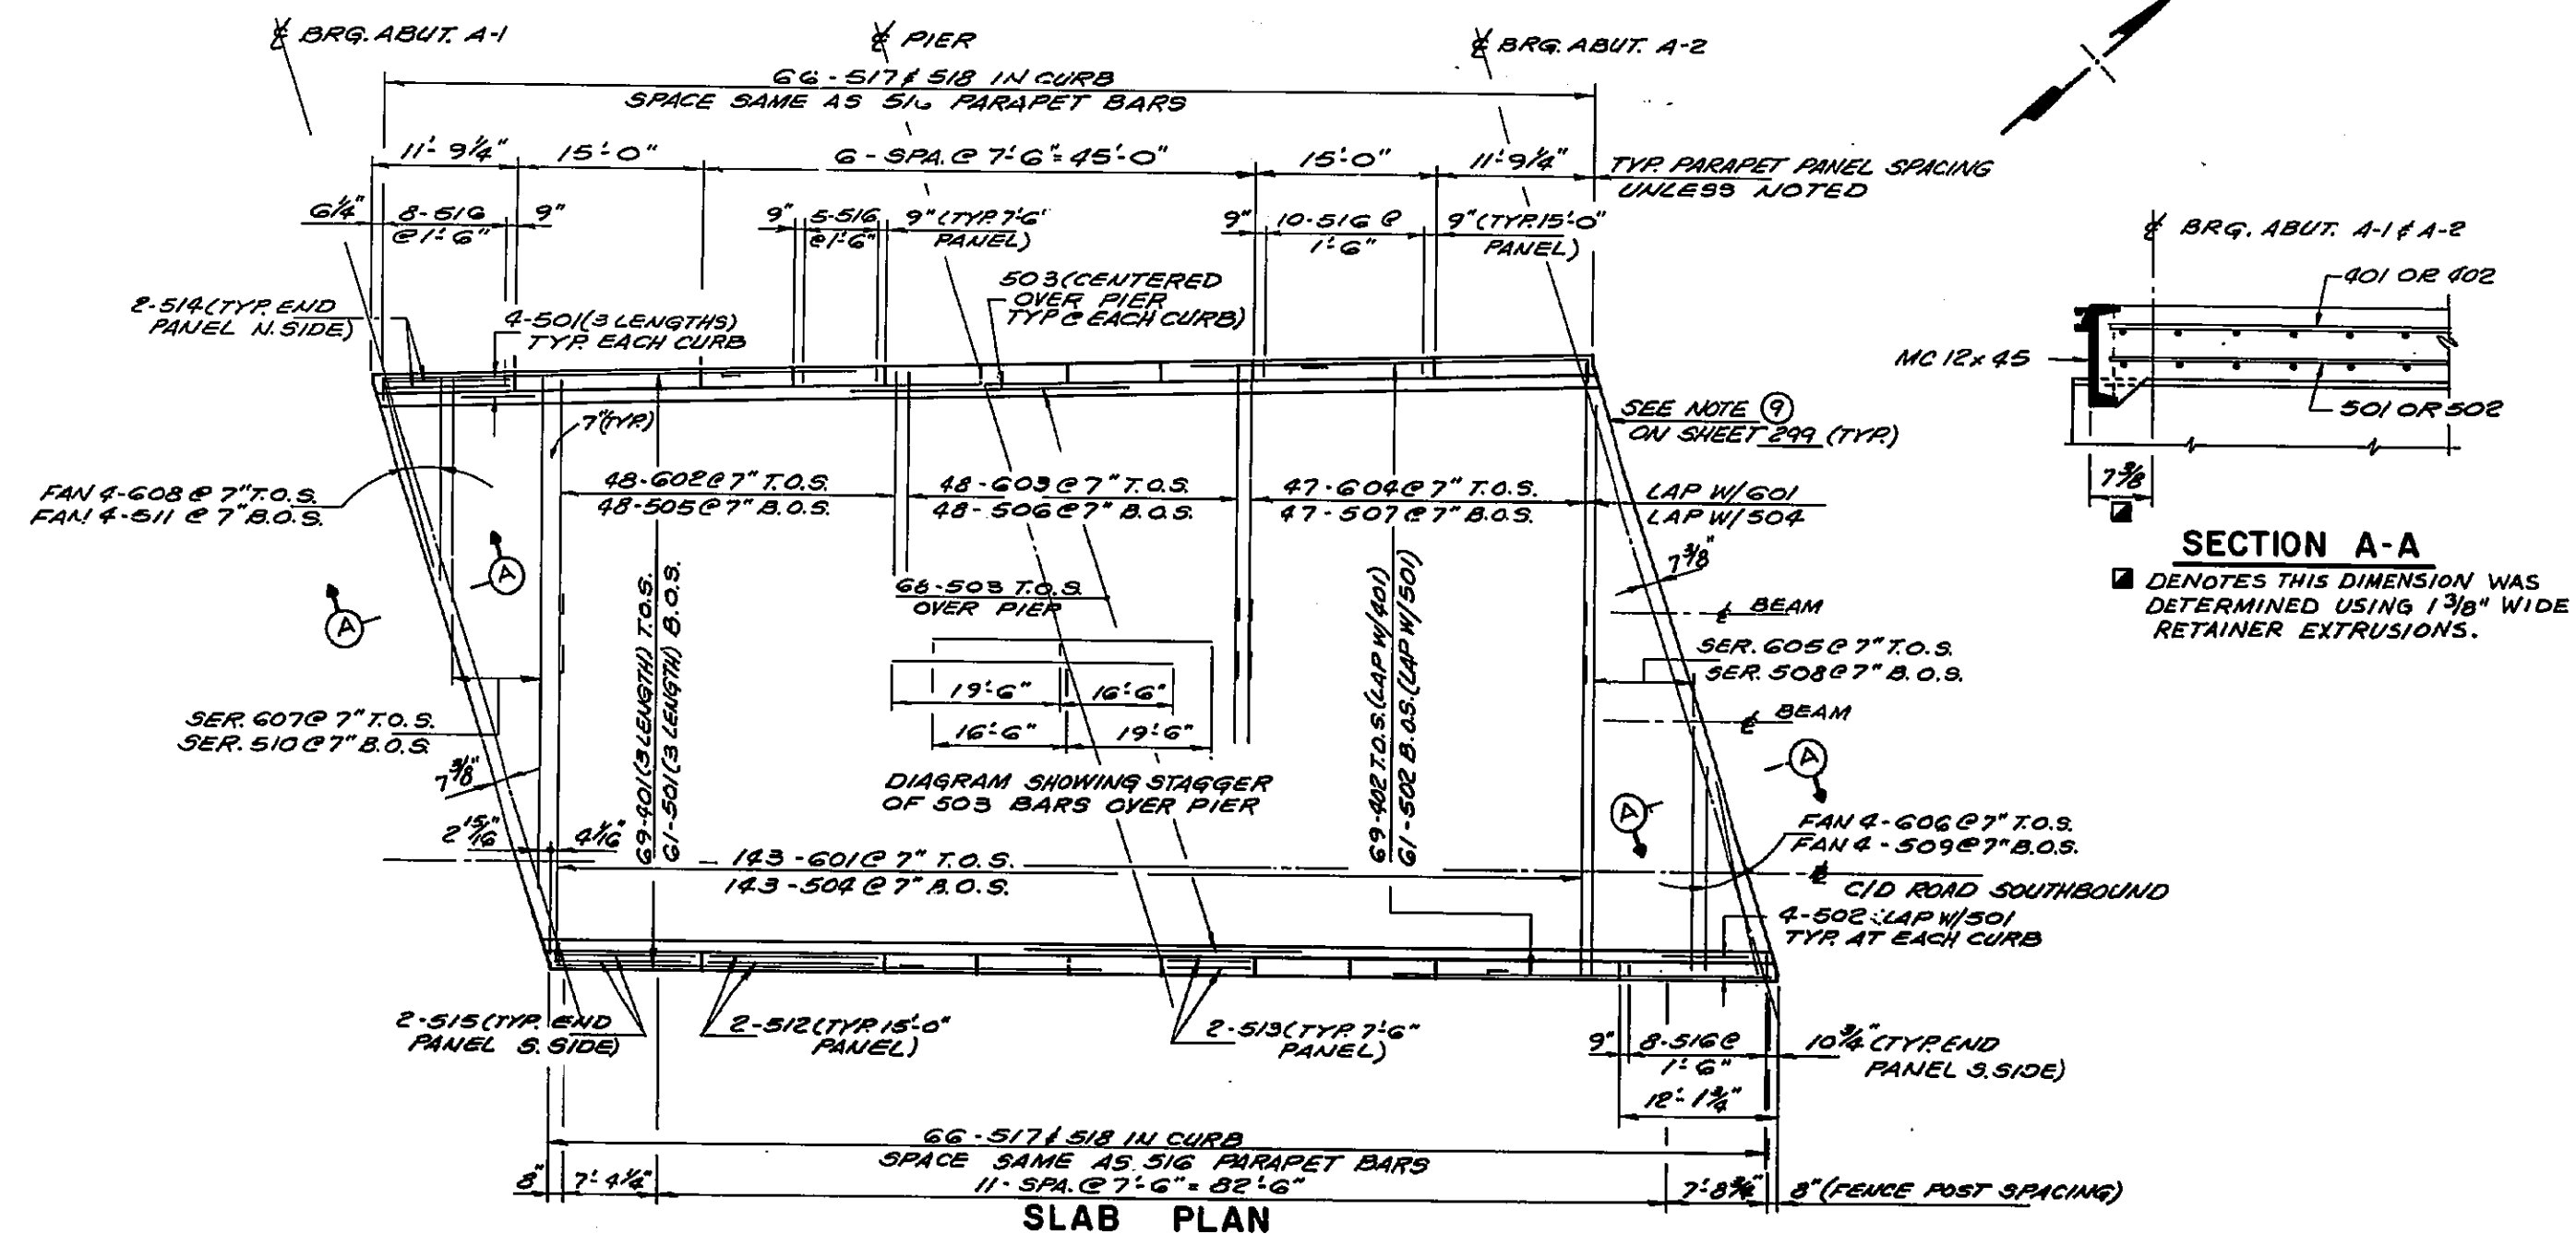 ℄ BRG. ABUT. A-1
℄ PIER
℄ BRG. ABUT. A-2
66-517 & 518 IN CURB
SPACE SAME AS 516 PARAPET BARS
11'-9 1/4"
15'-0"
6-SPA. @ 7'-6" = 45'-0"
15'-0"
11'-9 1/4"
TYP. PARAPET PANEL SPACING
UNLESS NOTED
6 1/4"
8-516
@ 1'-6"
9"
9"
5-516
@ 1'-6"
9" (TYP. 7'-6"
PANEL)
9"
10-516 @
1'-6"
9" (TYP. 15'-0"
PANEL)
2-514 (TYP. END
PANEL N. SIDE)
4-501 (3 LENGTHS)
TYP. EACH CURB
503 (CENTERED
OVER PIER
TYP @ EACH CURB)
7" (TYP.)
SEE NOTE 9
ON SHEET 299 (TYP.)
FAN 4-608 @ 7" T.O.S.
FAN 4-511 @ 7" B.O.S.
48-602 @ 7" T.O.S.
48-505 @ 7" B.O.S.
48-603 @ 7" T.O.S.
48-506 @ 7" B.O.S.
47-604 @ 7" T.O.S.
47-507 @ 7" B.O.S.
LAP W/601
LAP W/504
7 3/8"
A
A
68-503 T.O.S.
OVER PIER
69-401 (3 LENGTH) T.O.S.
61-501 (3 LENGTH) B.O.S.
69-402 T.O.S. (LAP W/401)
61-502 B.O.S. (LAP W/501)
℄ BEAM
SER. 605 @ 7" T.O.S.
SER. 508 @ 7" B.O.S.
℄ BEAM
19'-6"
16'-6"
16'-6"
19'-6"
SER. 607 @ 7" T.O.S.
SER. 510 @ 7" B.O.S.
7 3/8"
DIAGRAM SHOWING STAGGER
OF 503 BARS OVER PIER
A
A
2 15/16"
4 1/16"
143-601 @ 7" T.O.S.
143-504 @ 7" B.O.S.
FAN 4-606 @ 7" T.O.S.
FAN 4-509 @ 7" B.O.S.
℄
C/D ROAD SOUTHBOUND
4-502 LAP W/501
TYP. AT EACH CURB
2-515 (TYP. END
PANEL S. SIDE)
2-512 (TYP. 15'-0"
PANEL)
2-513 (TYP. 7'-6"
PANEL)
9"
8-516 @
1'-6"
10 3/4" (TYP. END
PANEL S. SIDE)
12'-1 3/4"
66-517 & 518 IN CURB
SPACE SAME AS 516 PARAPET BARS
8"
7'-4 1/4"
11-SPA. @ 7'-6" = 82'-6"
7'-8 3/4"
8" (FENCE POST SPACING)
SLAB PLAN
℄ BRG. ABUT. A-1 & A-2
401 OR 402
MC 12 x 45
501 OR 502
7 3/8
SECTION A-A
DENOTES THIS DIMENSION WAS
DETERMINED USING 1 3/8" WIDE
RETAINER EXTRUSIONS.